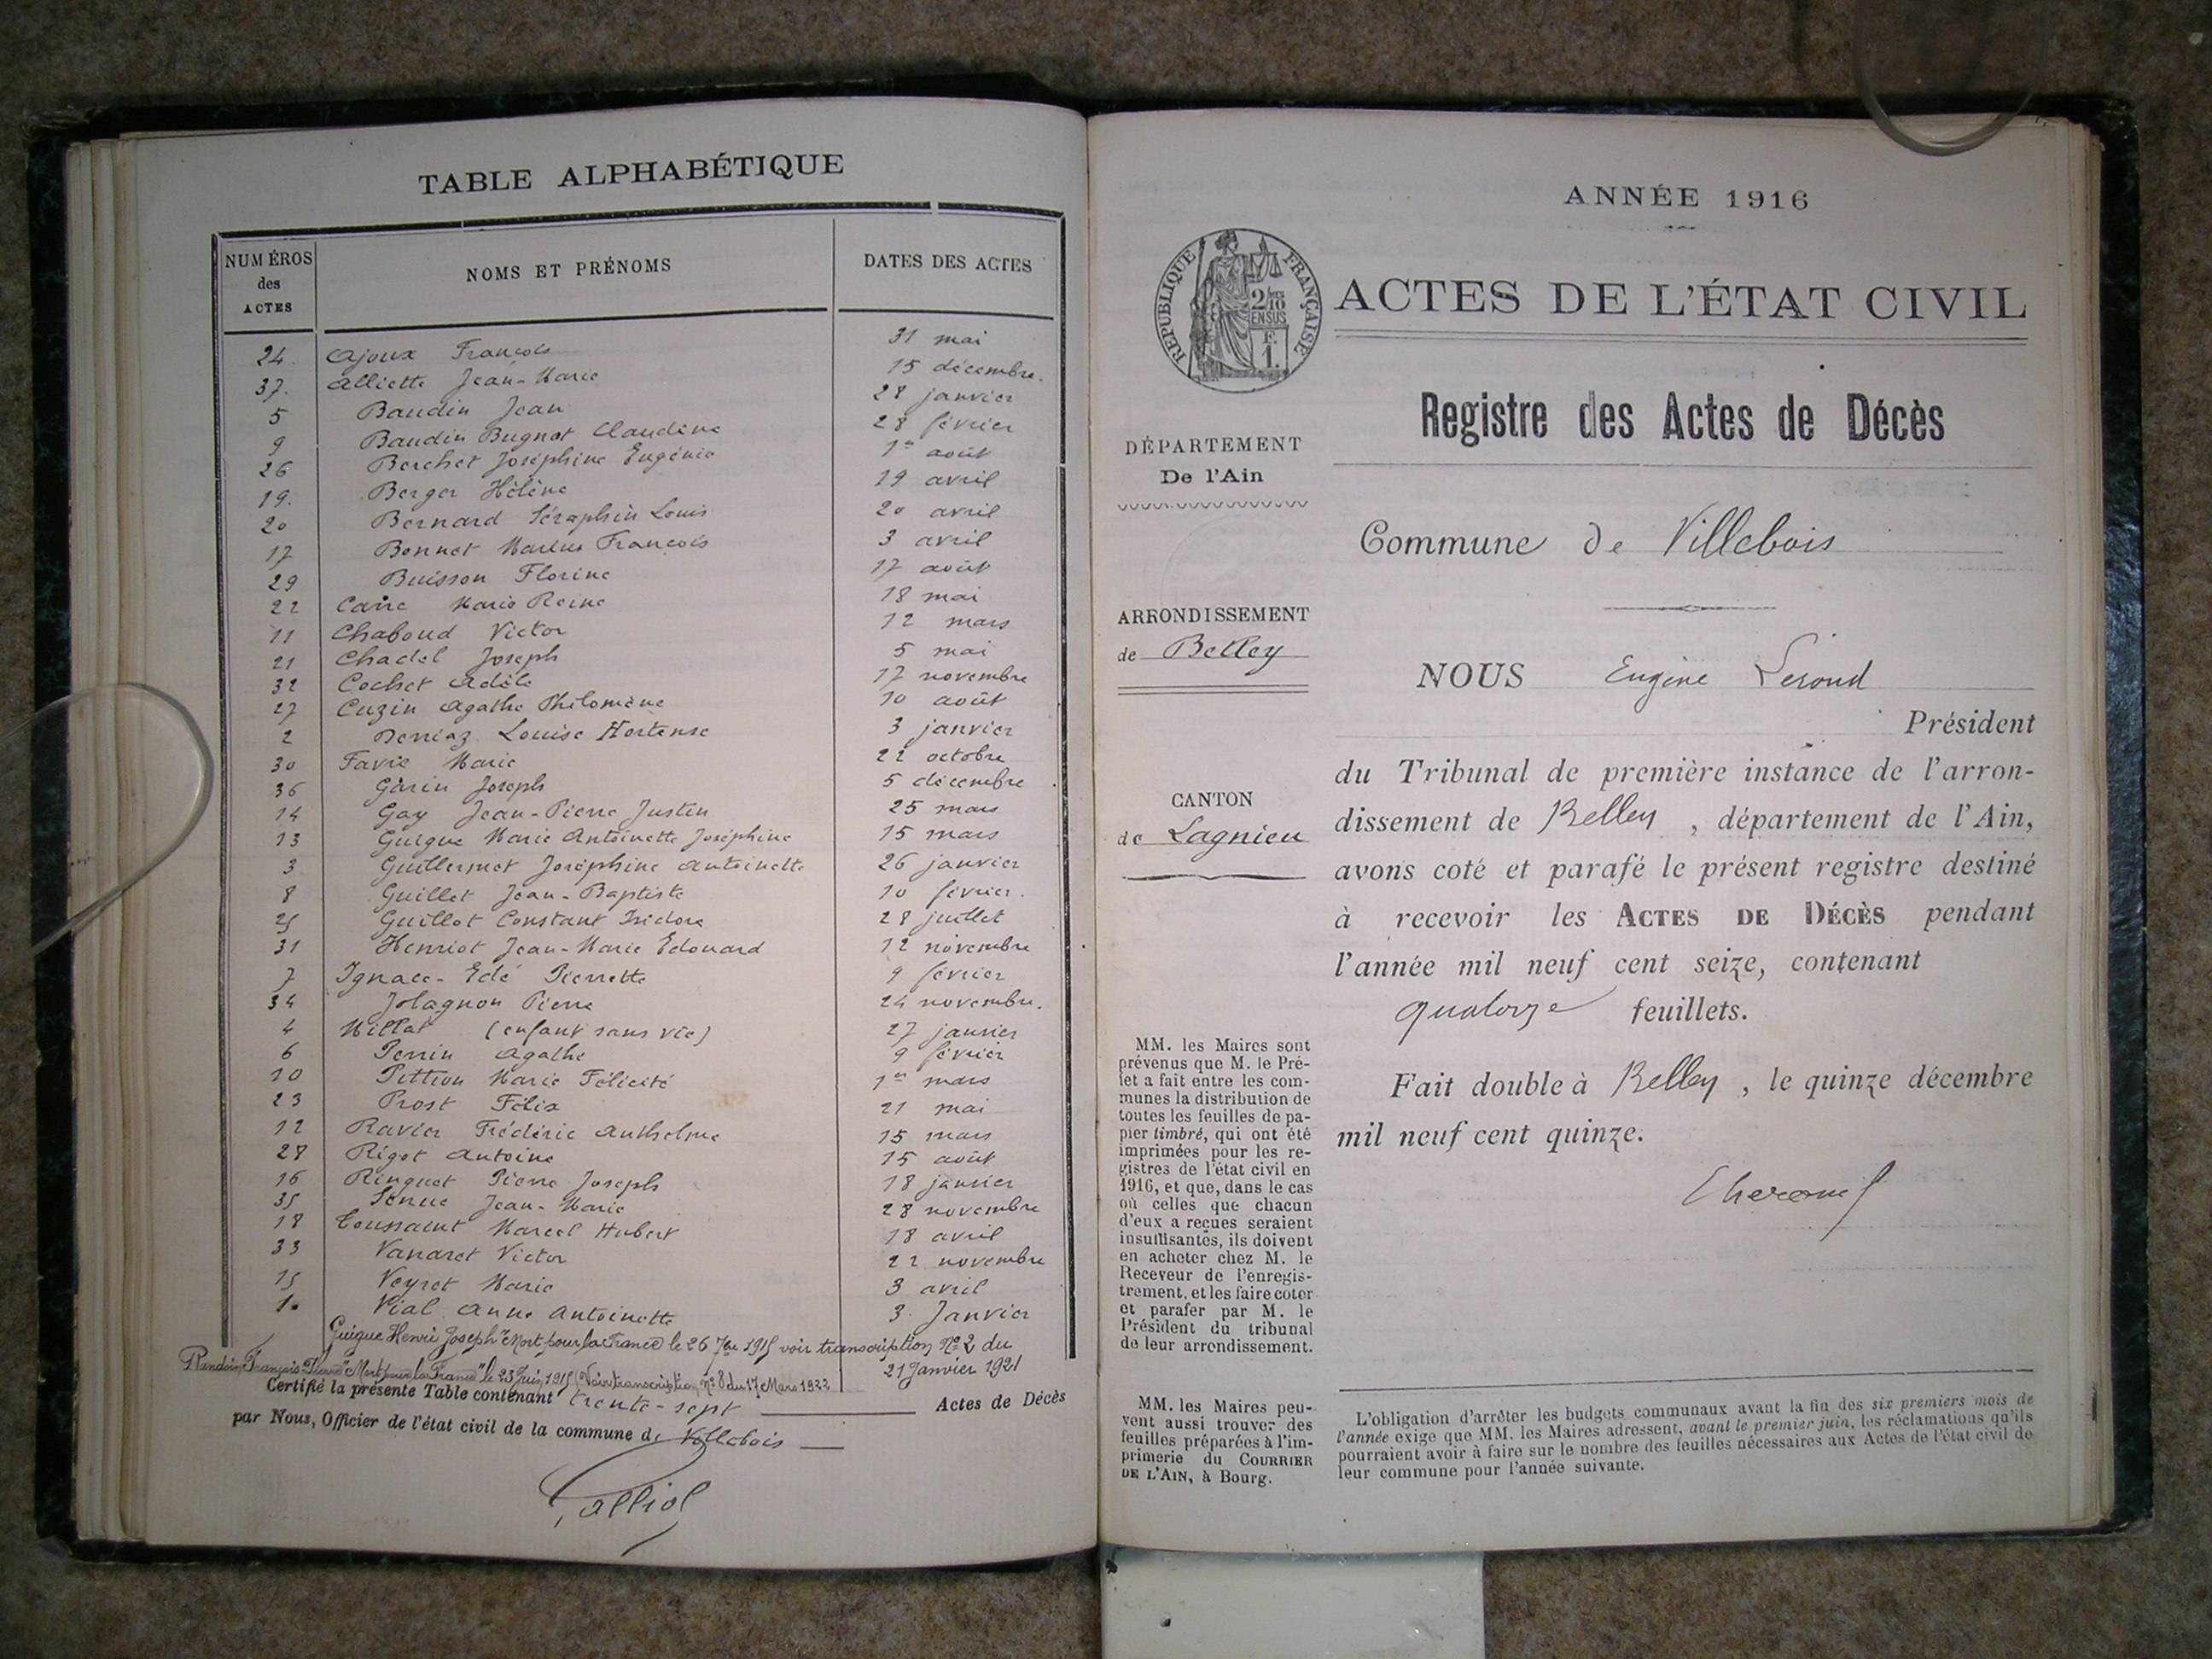 TABLE ALPHABÉTIQUE
NUMÉROS des ACTES NOMS ET PRÉNOMS DATES DES ACTES
24. Ajoux François 31 mai
37. Alliette Jean-Marie 15 décembre.
5 Baudin Jean 28 janvier
9 Baudin Bugnot Claudine 28 février
26 Berchet Joséphine Eugénie 1er août
19. Berger Hélène 19 avril
20 Bernard Séraphin Louis 20 avril
17 Bonnet Marius François 3 avril
29 Buisson Florine 17 août
22 Marie Reine 18 mai
11 Chaboud Victor 12 mars
21 Chadel Joseph 5 mai
32 Cochet Adèle 17 novembre
27 Cuzin Agathe Philomène 10 août
2 Derriaz Louise Hortense 3 janvier
30 Favie Marie 22 octobre
36 Garin Joseph 5 décembre
14 Gay Jean-Pierre Justin 25 mars
13 Guigue Marie Antoinette Joséphine 15 mars
3 Guillermet Joséphine Antoinette 26 janvier
8 Guillet Jean-Baptiste 10 février.
25 Guillot Constant Isidore 28 juillet
31 Henriot Jean-Marie Edouard 12 novembre
7 Ignace-Edé Pierrette 9 février
34 Jolagnon Pierre 24 novembre.
4 Millat (enfant sans vie) 27 janvier
6 Perrin Agathe 9 février
10 Pittion Marie Félicité 1er mars
23 Prost Félix 21 mai
12 Ravier Frédéric Anthelme 15 mars
28 Rigot Antoine 15 août
16 Ringuet Pierre Joseph 18 janvier
35 Jean-Marie 28 novembre
18 Toussaint Marcel Hubert 18 avril
33 Vanaret Victor 22 novembre
15 Veyret Marie 3 avril
1. Vial Anne Antoinette 3. Janvier
Guigue Henri Joseph "Mort pour la France" le 26 7bre 1915 voir transcription No 2 du
21 Janvier 1921
François Pierre "Mort pour la France" le 23 Juin 1915 (Voir transcription No 8 du 17 Mars 1922
Certifié la présente Table contenant trente-sept Actes de Décès
par Nous, Officier de l'état civil de la commune de Villebois
ANNÉE 1916
RÉPUBLIQUE FRANÇAISE
2/10 EN SUS
1.
ACTES DE L'ÉTAT CIVIL
Registre des Actes de Décès
DÉPARTEMENT
De l'Ain
Commune de Villebois
ARRONDISSEMENT
de Belley
NOUS Eugène
Président
du Tribunal de première instance de l'arron-
dissement de Belley, département de l'Ain,
avons coté et parafé le présent registre destiné
à recevoir les ACTES DE DÉCÈS pendant
l'année mil neuf cent seize, contenant
quatorze feuillets.
Fait double à Belley, le quinze décembre
mil neuf cent quinze.
CANTON
de Lagnieu
MM. les Maires sont
prévenus que M. le Pré-
fet a fait entre les com-
munes la distribution de
toutes les feuilles de pa-
pier timbré, qui ont été
imprimées pour les re-
gistres de l'état civil en
1916, et que, dans le cas
où celles que chacun
d'eux a reçues seraient
insuffisantes, ils doivent
en acheter chez M. le
Receveur de l'enregis-
trement, et les faire coter
et parafer par M. le
Président du tribunal
de leur arrondissement.
MM. les Maires peu-
vent aussi trouver des
feuilles préparées à l'im-
primerie du COURRIER
DE L'AIN, à Bourg.
L'obligation d'arrêter les budgets communaux avant la fin des six premiers mois de
l'année exige que MM. les Maires adressent, avant le premier juin, les réclamations qu'ils
pourraient avoir à faire sur le nombre des feuilles nécessaires aux Actes de l'état civil de
leur commune pour l'année suivante.